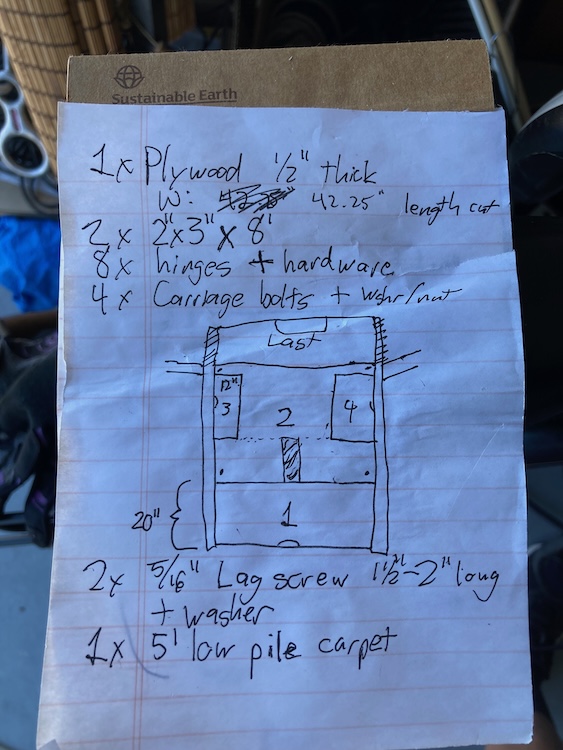 Sustainable Earth
1x Plywood 1/2" thick
W: 42.25" length cut
2x 2"x3"x 8'
8x hinges + hardware
4x Carriage bolts + wshr/nut
Last
12"
3
2
4
20"
1
2x 5/16" Lag screw 1 1/2"-2" long
+ washer
1x 5' low pile carpet